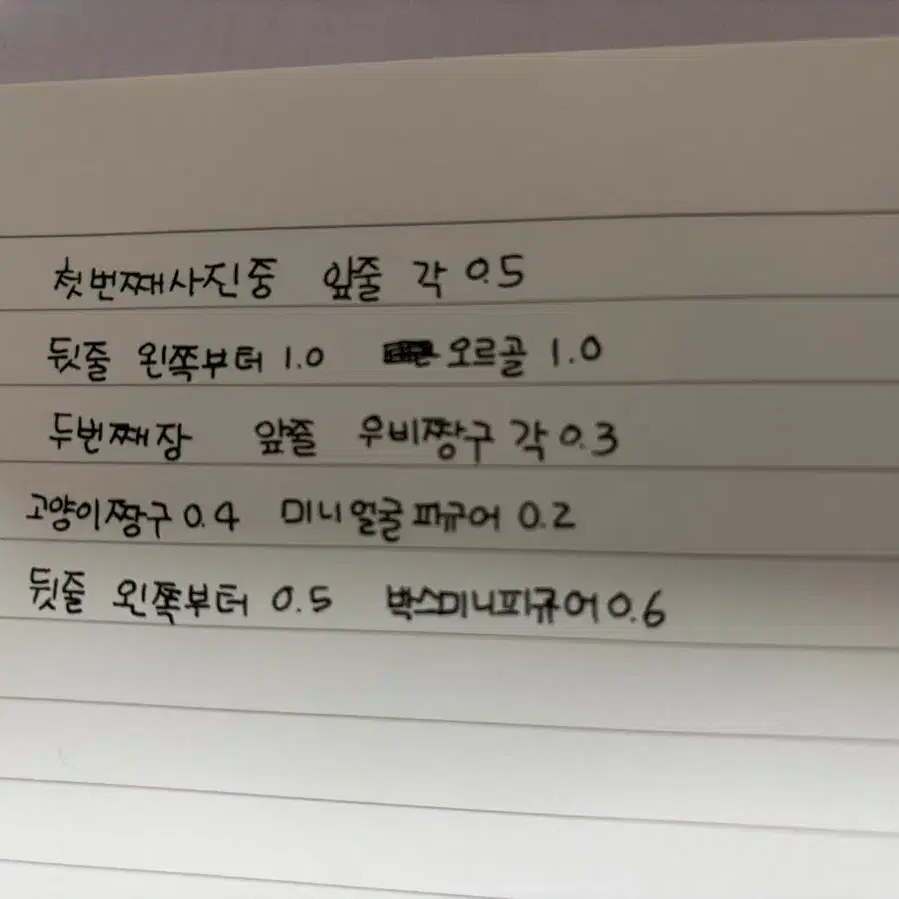 첫번째사진중 앞줄 각 0.5
뒷줄 왼쪽부터 1.0 오르골 1.0
두번째장 앞줄 우비짱구 각 0.3
고양이짱구 0.4 미니얼굴피규어 0.2
뒷줄 왼쪽부터 0.5 박스미니피규어 0.6